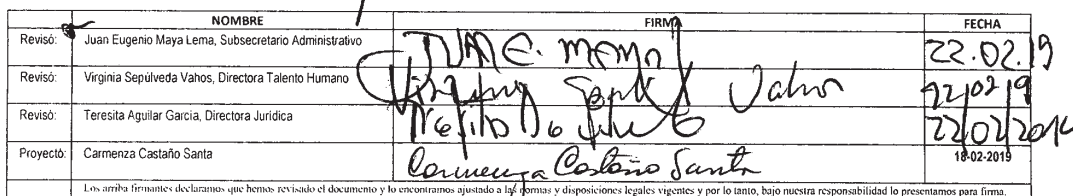 NOMBRE FIRMA FECHA
Revisó: Juan Eugenio Maya Lema, Subsecretario Administrativo 22.02.19
Revisó: Virginia Sepúlveda Vahos, Directora Talento Humano Virginia Sepúlveda Vahos 22/02/19
Revisó: Teresita Aguilar Garcia, Directora Jurídica 22/02/2019
Proyectó: Carmenza Castaño Santa Carmenza Castaño Santa 18-02-2019
Los arriba firmantes declaramos que hemos revisado el documento y lo encontramos ajustado a las normas y disposiciones legales vigentes y por lo tanto, bajo nuestra responsabilidad lo presentamos para firma.